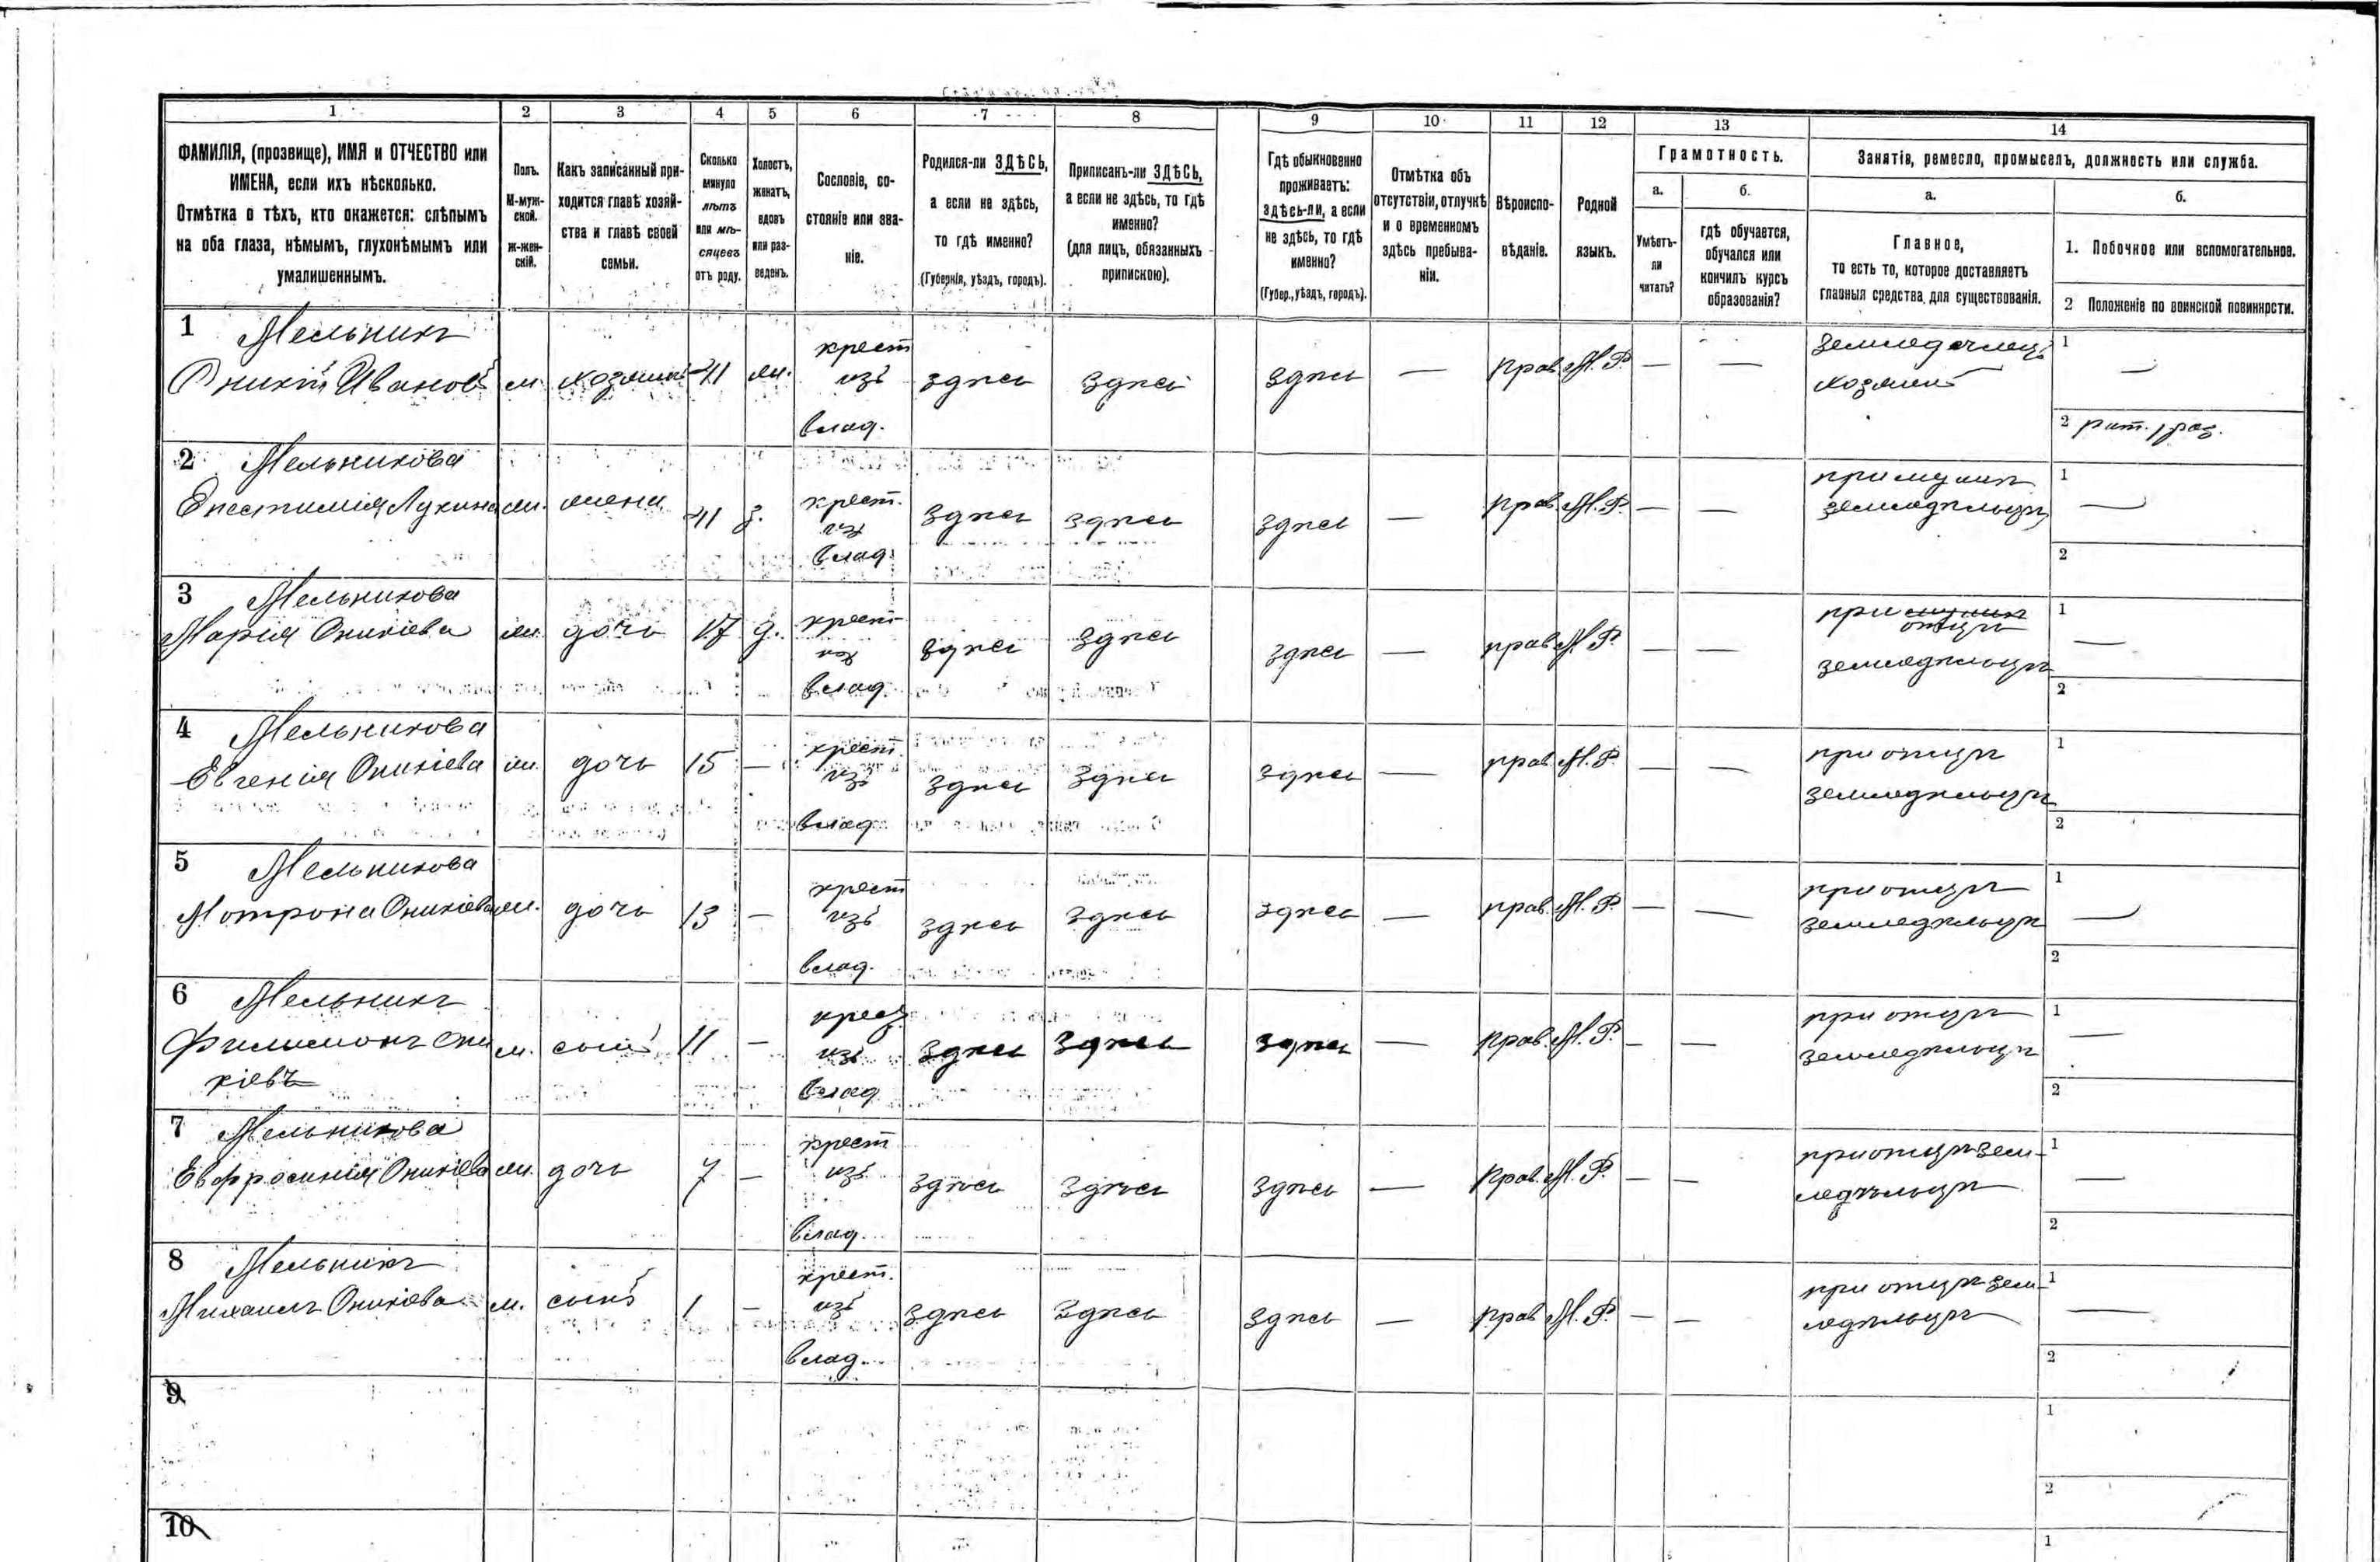 1 2 3 4 5 6 7 8 9 10 11 12 13 14
ФАМИЛІЯ, (прозвище), ИМЯ и ОТЧЕСТВО или
ИМЕНА, если ихъ нѣсколько.
Отмѣтка о тѣхъ, кто окажется: слѣпымъ
на оба глаза, нѣмымъ, глухонѣмымъ или
умалишеннымъ.
Полъ.
М-муж-
ской.
ж-жен-
скій.
Какъ записанный при-
ходится главѣ хозяй-
ства и главѣ своей
семьи.
Сколько
минуло
лѣтъ
или мѣ-
сяцевъ
отъ роду.
Холостъ,
женатъ,
вдовъ
или раз-
веденъ.
Сословіе, со-
стояніе или зва-
ніе.
Родился-ли ЗДѢСЬ,
а если не здѣсь,
то гдѣ именно?
(Губернія, уѣздъ, городъ).
Приписанъ-ли ЗДѢСЬ,
а если не здѣсь, то гдѣ
именно?
(для лицъ, обязанныхъ
припискою).
Гдѣ обыкновенно
проживаетъ:
здѣсь-ли, а если
не здѣсь, то гдѣ
именно?
(Губер., уѣздъ, городъ).
Отмѣтка объ
отсутствіи, отлучкѣ
и о временномъ
здѣсь пребыва-
ніи.
Вѣроиспо-
вѣданіе.
Родной
языкъ.
Грамотность.
а.
Умѣетъ-
ли
читать?
б.
гдѣ обучается,
обучался или
кончилъ курсъ
образованія?
Занятіе, ремесло, промыселъ, должность или служба.
а.
Главное,
то есть то, которое доставляетъ
главныя средства для существованія.
б.
1. Побочное или вспомогательное.
2 Положеніе по воинской повинности.
1 Мельникъ
Оникій Ивановъ м. хозяинъ 41 ж. крест изъ влад. здѣсь здѣсь здѣсь — Прав. М. Р. — — Земледѣлецъ хозяинъ 1 —
2 рат. 1 раз.
2 Мельникова
Епестимія Лукина ж. жена 41 з. крест. изъ влад. здѣсь здѣсь здѣсь — Прав. М. Р. — — при мужѣ земледѣльцѣ 1 —
2
3 Мельникова
Марія Оникіева ж. дочь 17 д. крест изъ влад. здѣсь здѣсь здѣсь — прав. М. Р. — — при мужѣ отцѣ земледѣльцѣ 1 —
2
4 Мельникова
Евгенія Оникіева ж. дочь 15 — крест. изъ влад. здѣсь здѣсь здѣсь — прав. М. Р. — — при отцѣ земледѣльцѣ 1
2
5 Мельникова
Мотрона Оникіева ж. дочь 13 — крест изъ влад. здѣсь здѣсь здѣсь — прав. М. Р. — — при отцѣ земледѣльцѣ 1 —
2
6 Мельникъ
Филимонъ Они м. сынъ 11 — крест изъ влад здѣсь здѣсь здѣсь — Прав. М. Р. — — при отцѣ земледѣльцѣ 1 —
кіевъ
2
7 Мельникова
Евфросинія Оникіева ж. дочь 7 — крест изъ влад. здѣсь здѣсь здѣсь — Прав. М. Р. — — при отцѣ зем- ледѣльцѣ 1 —
2
8 Мельникъ
Михаилъ Оникіева м. сынъ 1 — крест. изъ влад. здѣсь здѣсь здѣсь — Прав М. Р. — — при отцѣ зем- ледѣльцѣ 1 —
2
9
1
2
10
1